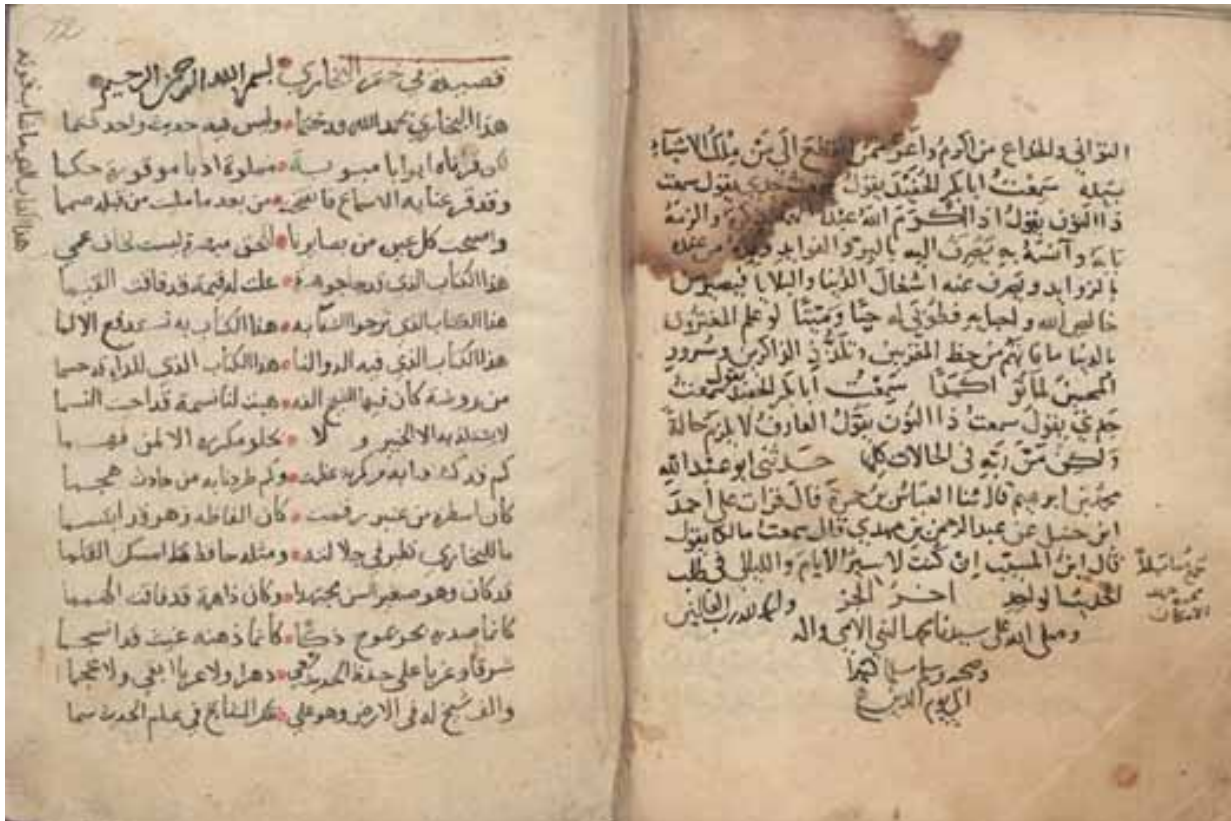 التواني والخداع من اكرم واعز ممن انقطع الي من ملك الاشياء
بيده سمعت ابا بكر الجنيد يقول سمعت جدي يقول سمعت
ذا النون يقول اذا اكرم الله عبدا ذكره والزمه
بابه وآنسه به يصرف اليه بالبر والفوايد من عنده
بالزوايد ويصرف عنه اشغال الدنيا والبلايا فيصير من
خالص الله واحبابه فطوبى له حيا وميتا لو علم المغترون
بالدنيا ما فاتهم من حظ المقربين وتلذذ الذاكرين وسرور
المحبين لماتوا كمدا سمعت ابا بكر يقول سمعت
جدي يقول سمعت ذا النون يقول العارف لا يلزم حالة
ولكن من ربه في الحالات كلها حدثني ابو عبد الله
محمد بن ابرهيم قال ثنا العباس بن حمزة قال قرات على احمد
ابن حنبل عن عبد الرحمن بن مهدي قال سمعت مالكا يقول
قال ابن المسيب ان كنت لاسير الايام والليالي في طلب
الحديث الواحد اخر الجزء والحمد لله رب العالمين
وصلى الله على سيدنا محمد النبي الامي واله
وصحبه وسلم تسليما كثيرا
الى يوم الدين
بحسب الامكان
72
قصيدة في ختم البخاري بسم الله الرحمن الرحيم
هذا البخاري بحمد الله قد ختما وليس فيه حديث واحد كتما
قد قراناه ابوابا مبوبة مملوة ادبا موقورة حكما
وقد قرعنا به الاسماع فانفتحت من بعد ما ملئت من قبله صمما
واصبحت كل عين من بصايرنا للحق مبصرة ليست تخاف عمى
هذا الكتاب الذي قد جا جوهرة علت له قيمة قد فاقت القيما
هذا الكتاب الذي نرجو الشفا به هذا الكتاب به نستدفع الالما
هذا الكتاب الذي فيه الدوا لنا هذا الكتاب الذي للداء قد حسما
من روضة كان فيها الشيخ هبت لنا نسمة قد احيت النسما
لا يبتدا به الا لخير ولا يحلو مكرره الا لمن فهما
كم قد به من كربة عظمت وكم طردنا به من حادث هجما
كان اسطره من عنبر رقمت كان الفاظه زهر قد ابتسما
ما للبخاري نظير في جلالته ومثله حافظ ما امسك القلما
قد كان وهو صغير السن مجتهدا وكان ذا همة قد فاقت الهمما
كانما صدره بحر يموج ذكا كانما ذهنه غيث قد انسجما
شرقا وغربا على حفظ الحديث دهرا ولا عربا ابقى ولا عجما
والف شيخ له في الارض وهو على المشايخ في علم الحديث سما